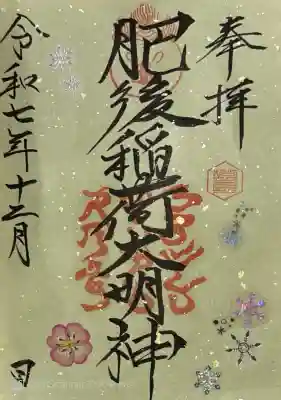 奉拝
肥後稲荷大明神
令和七年十二月
日